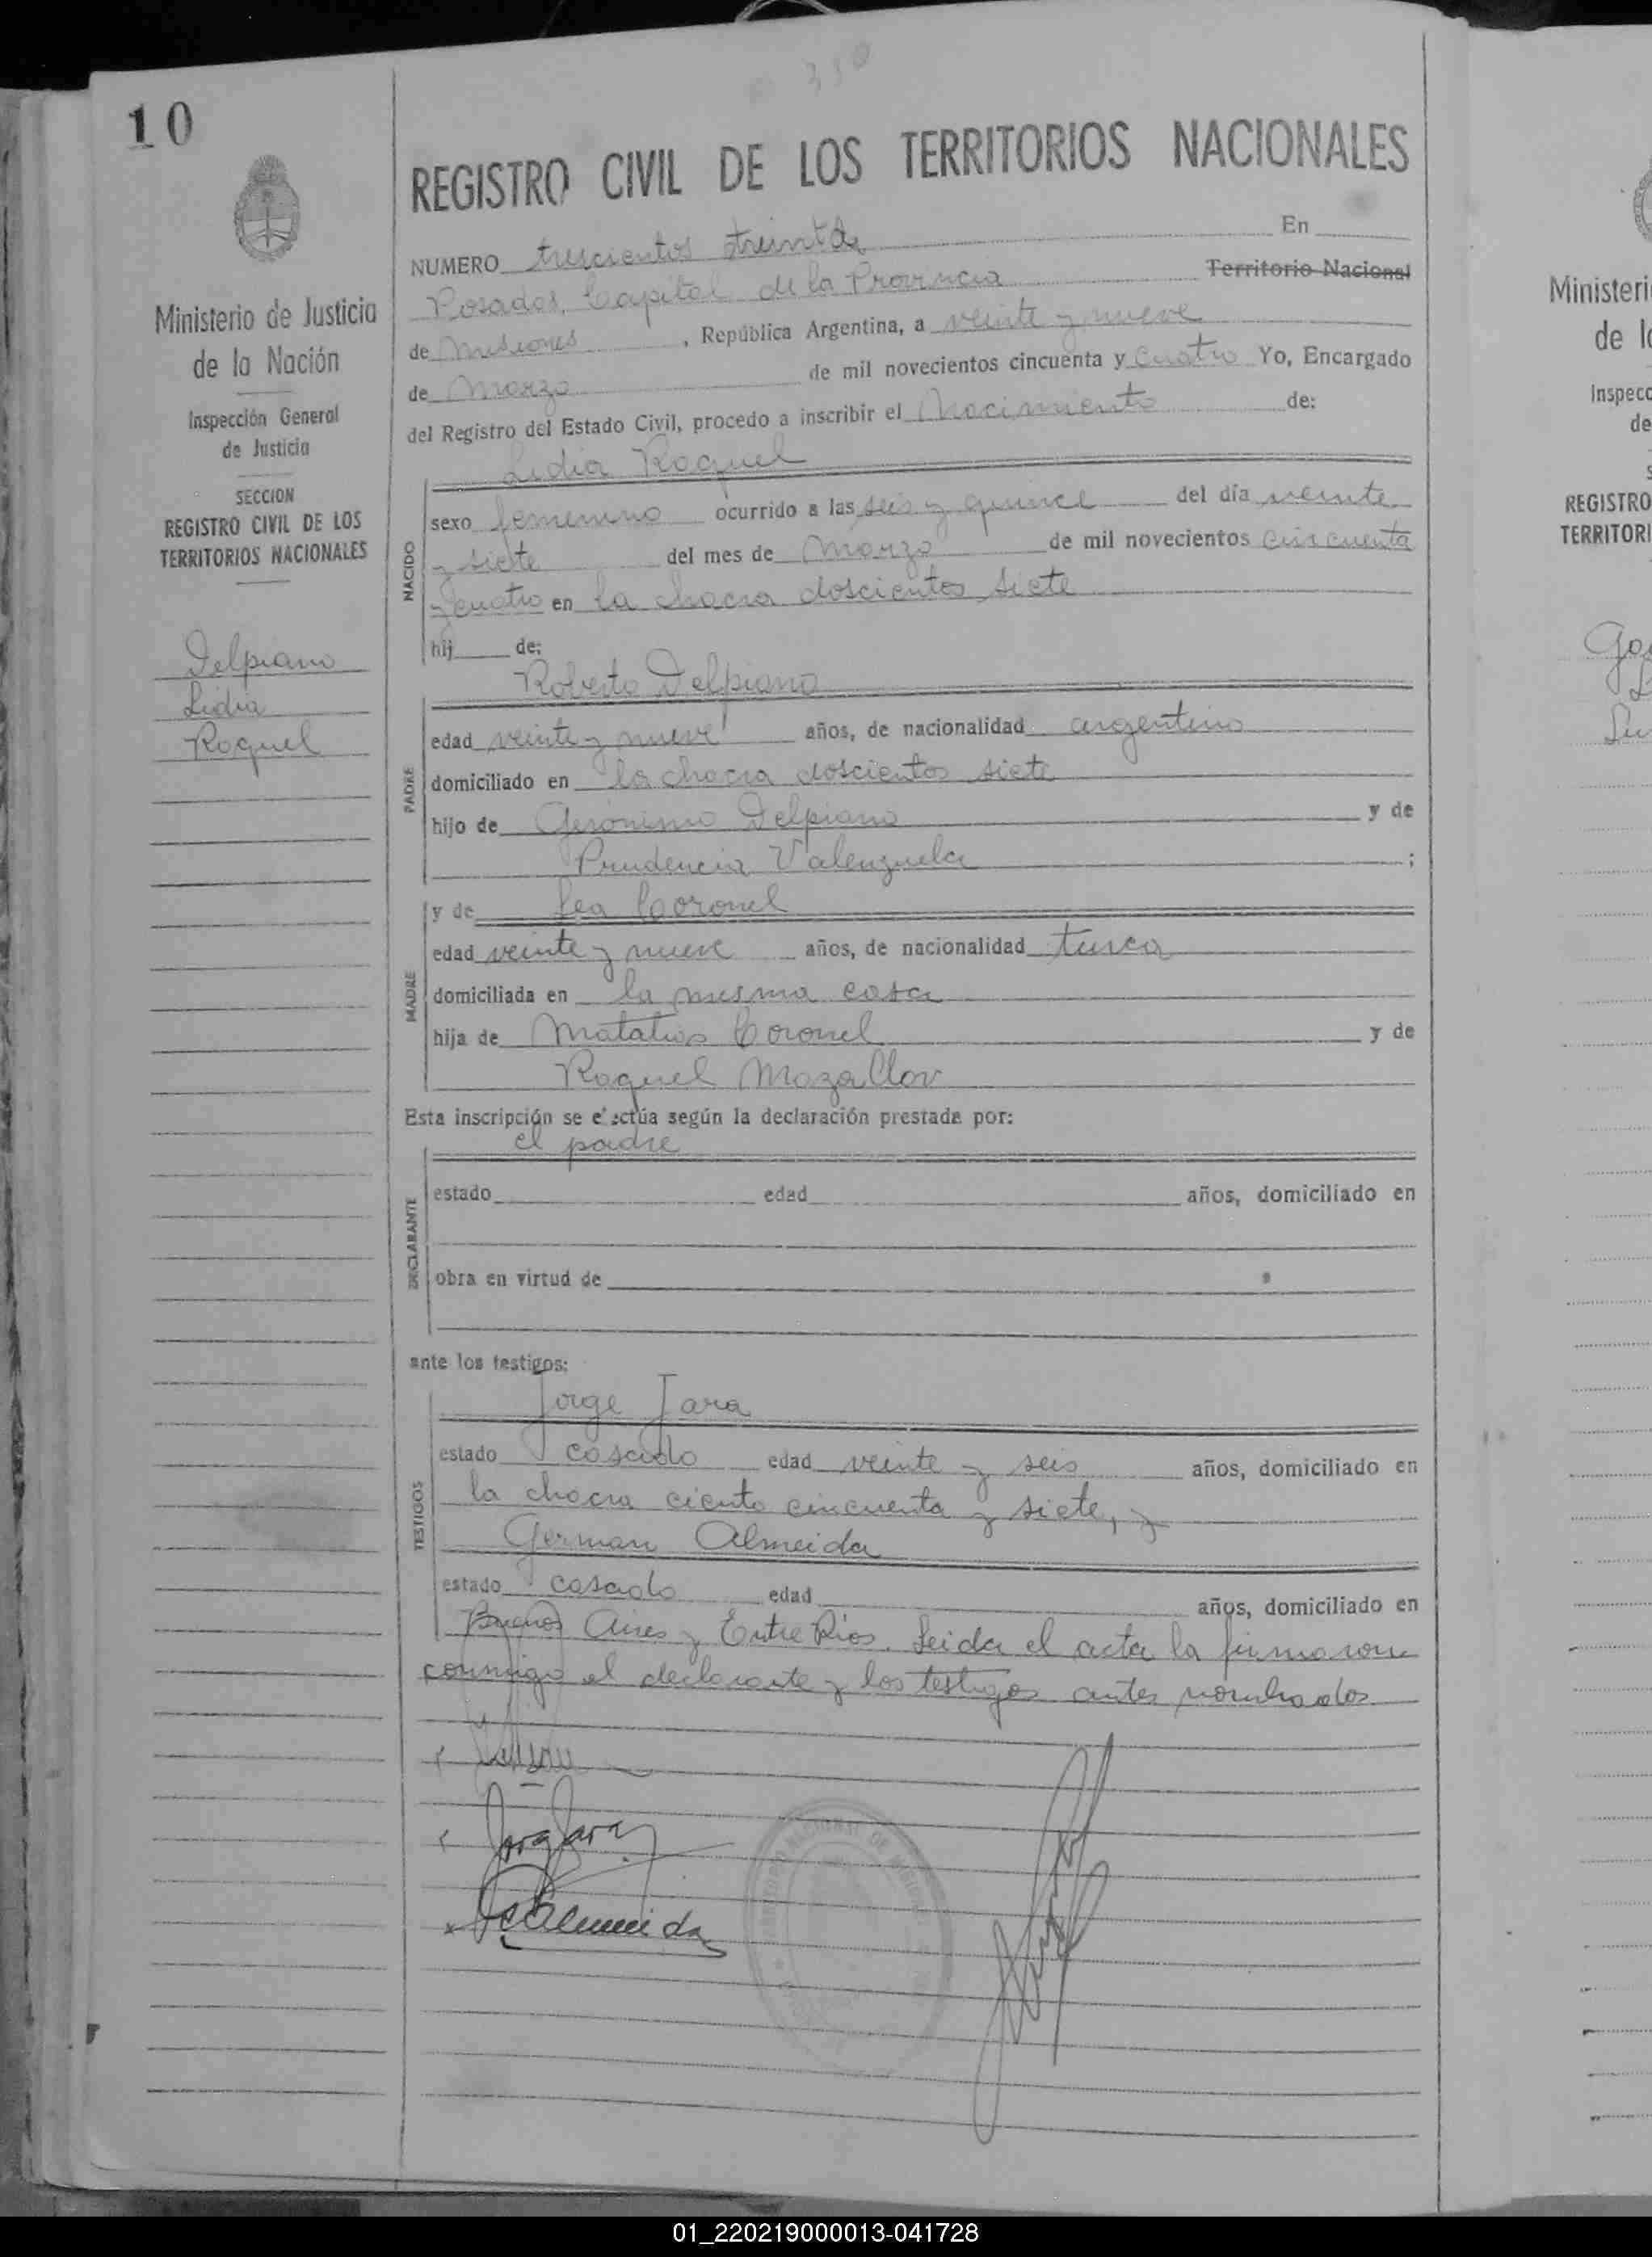 330
10
REGISTRO CIVIL DE LOS TERRITORIOS NACIONALES
Ministerio de Justicia
de la Nación
Inspección General
de Justicia
SECCION
REGISTRO CIVIL DE LOS
TERRITORIOS NACIONALES
Delpiano
Lidia
Raquel
NUMERO trescientos treinta En
Posadas, Capital de la Provincia Territorio Nacional
de Misiones, República Argentina, a veinte y nueve
de Marzo de mil novecientos cincuenta y cuatro Yo, Encargado
del Registro del Estado Civil, procedo a inscribir el Nacimiento de:
Lidia Raquel
NACIDO
sexo femenino ocurrido a las seis y quince del día veinte
y siete del mes de Marzo de mil novecientos cincuenta
y cuatro en la chacra doscientos siete
hij de:
Roberto Delpiano
PADRE
edad veinte y nueve años, de nacionalidad argentino
domiciliado en la chacra doscientos siete
hijo de Gerónimo Delpiano y de
Prudencia Valenzuela ;
y de Lea Coronel
MADRE
edad veinte y nueve años, de nacionalidad turca
domiciliada en la misma casa
hija de Matatias Coronel y de
Raquel Mazallov
Esta inscripción se efectúa según la declaración prestada por:
el padre
DECLARANTE
estado edad años, domiciliado en
obra en virtud de
ante los testigos:
Jorge Jara
TESTIGOS
estado casado edad veinte y seis años, domiciliado en
la chacra ciento cincuenta y siete, y
German Almeida
estado casado edad años, domiciliado en
Buenos Aires y Entre Rios. Leida el acta la firmaron
conmigo el declarante y los testigos antes nombrados
Jorge Jara
GAlmeida
Ministeri
REGISTRO
TERRITORI
01_220219000013-041728